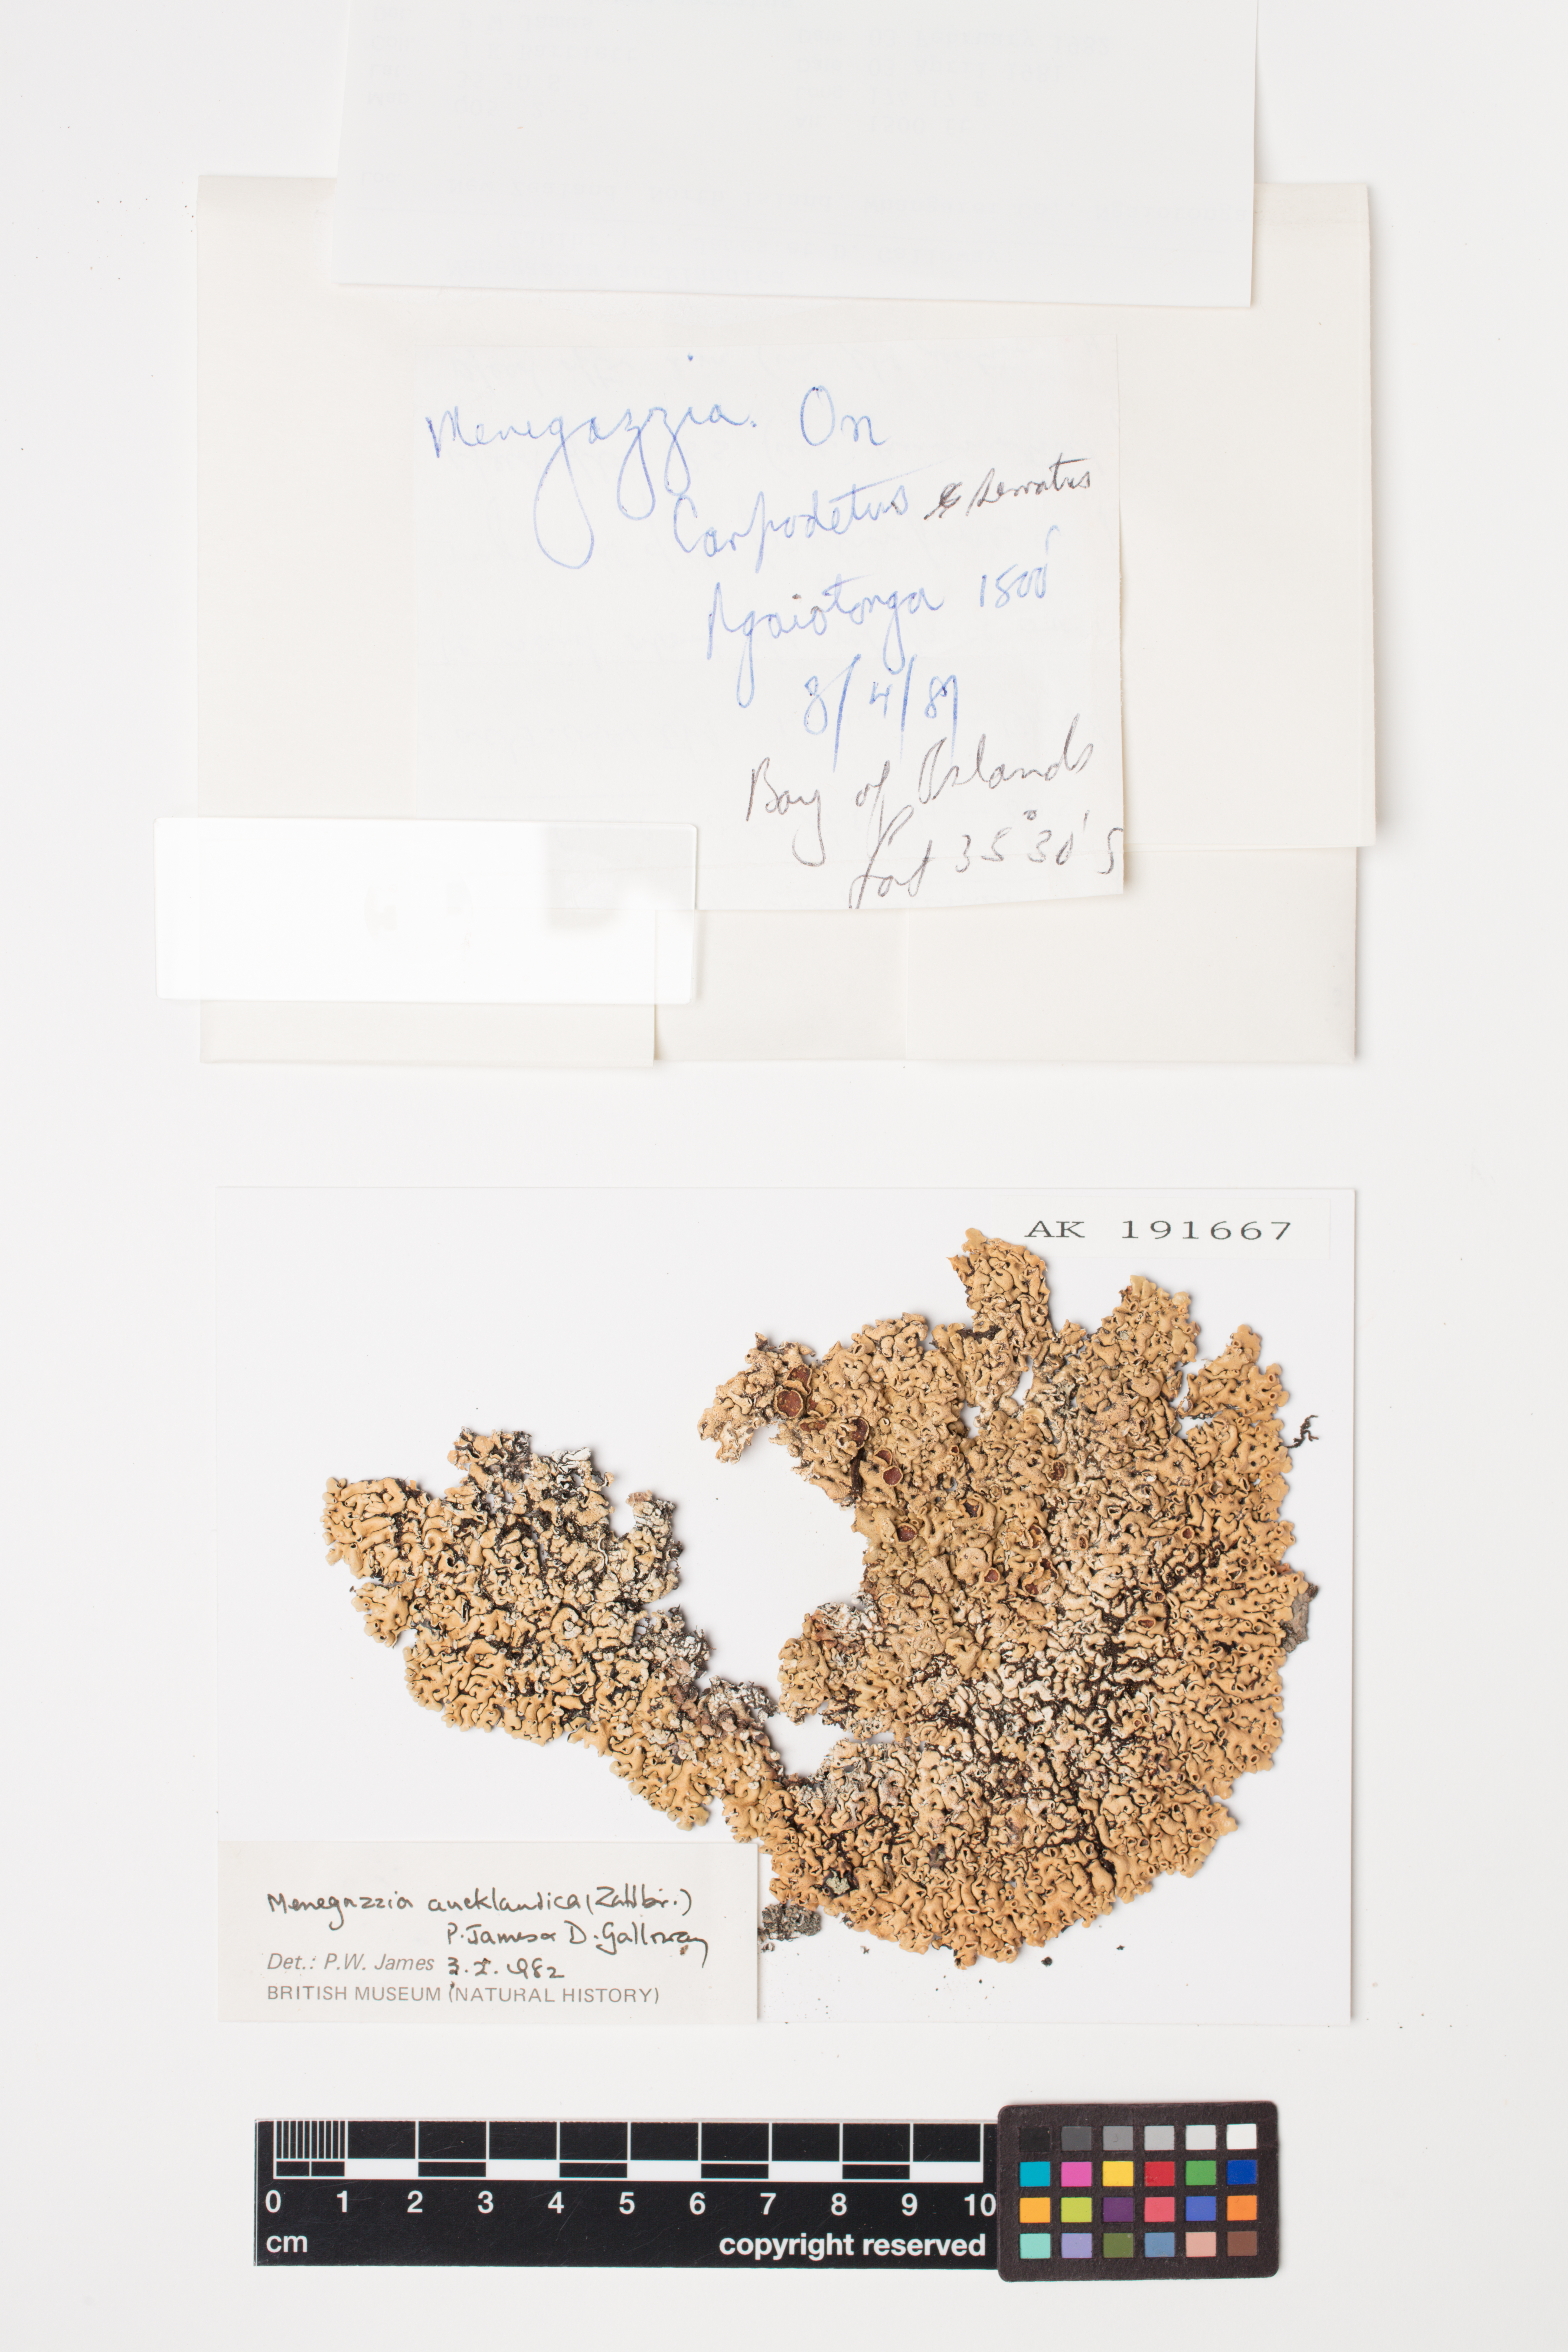 Menegazzia. On
Carpodetus serratus
Ngaiotonga 1500'
3/4/81
Bay of Islands
Lat 35°30'S
AK 191667
Menegazzia aucklandica (Zahlbr.)
P. James & D. Galloway
Det.: P.W. James 3.I.1982
BRITISH MUSEUM (NATURAL HISTORY)
0 1 2 3 4 5 6 7 8 9 10
cm copyright reserved